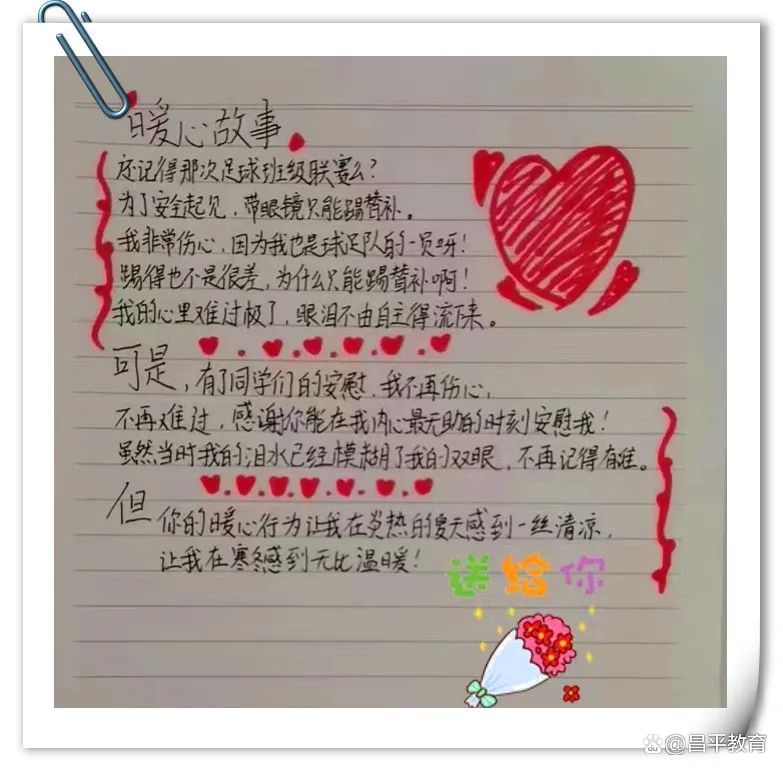 暖心故事
还记得那次足球班级联赛么？
为了安全起见，带眼镜只能踢替补。
我非常伤心，因为我也是球足队的一员呀！
踢得也不是很差，为什么只能踢替补啊！
我的心里难过极了，眼泪不由自主得流下来。
可是，有了同学们的安慰，我不再伤心，
不再难过，感谢你能在我内心最无助的时刻安慰我！
虽然当时我的泪水已经模糊了我的双眼，不再记得有谁。
但你的暖心行为让我在炎热的夏天感到一丝清凉，
让我在寒冬感到无比温暖！
送给你
@昌平教育